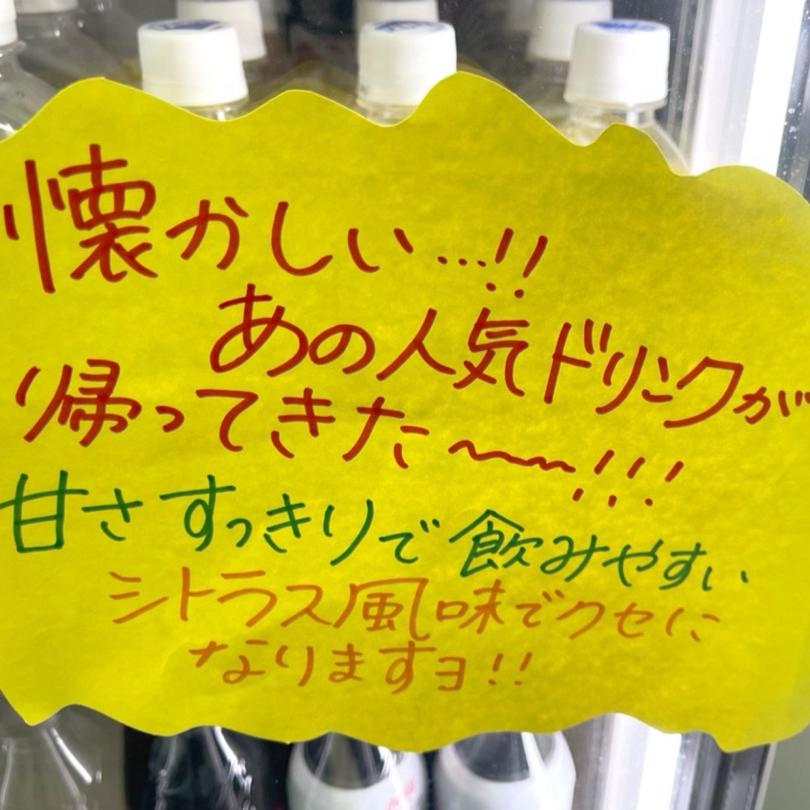 懐かしい…!!
あの人気ドリンクが
帰ってきた〜〜!!!
甘さすっきりで飲みやすい
シトラス風味でクセに
なりますヨ!!